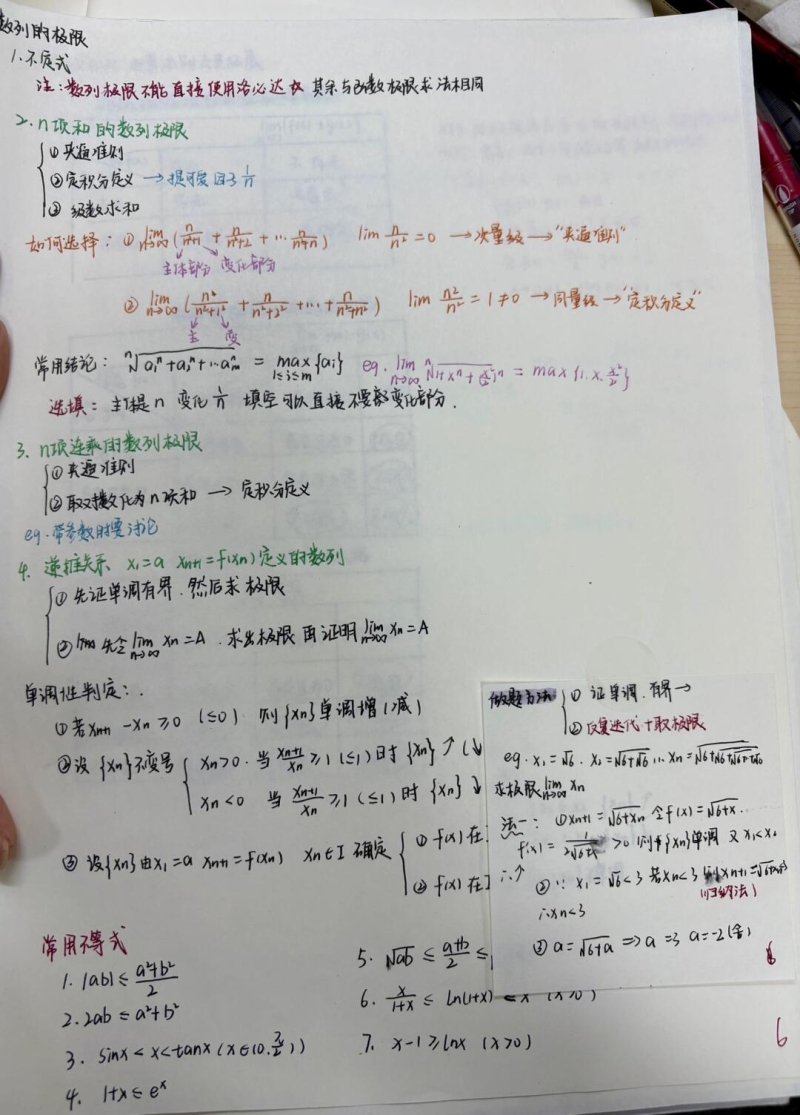 数列的极限
1. 不定式
注：数列极限不能直接使用洛必达 其余与函数极限求法相同
2. n项和的数列极限
① 夹逼准则
② 定积分定义 → 提可爱因子 1/n
③ 级数求和
如何选择：① lim n→∞ (n/n²+1 + n/n²+2 + … n/n²+n) lim n/n² = 0 → 次量级 → "夹逼准则"
主体部分 变化部分
② lim n→∞ (n/n²+1² + n/n²+2² + … + n/n²+n²) lim n²/n² = 1 ≠ 0 → 同量级 → "定积分定义"
主 变
常用结论：ⁿ√a₁ⁿ+a₂ⁿ+…aₘⁿ = max 1≤i≤m {ai} eg. lim n→∞ ⁿ√1+xⁿ+(x²/2)ⁿ = max{1, x, x²/2}
选填：主体提 n 变化 1/n 填空可以直接不要变化部分.
3. n项连乘的数列极限
① 夹逼准则
② 取对数化为n项和 → 定积分定义
eg. 带参数时要讨论
4. 递推关系 x₁=a xₙ₊₁=f(xₙ)定义的数列
① 先证单调有界, 然后求极限
② 先令 lim n→∞ xₙ=A, 求出极限 再证明 lim n→∞ xₙ=A
单调性判定：
① 若xₙ₊₁-xₙ≥0 (≤0) 则{xₙ}单调增(减)
② 设{xₙ}不变号 xₙ>0. 当 xₙ₊₁/xₙ ≥1 (≤1)时 {xₙ}↑(↓
xₙ<0 当 xₙ₊₁/xₙ ≥1 (≤1)时 {xₙ}↓
③ 设{xₙ}由x₁=a xₙ₊₁=f(xₙ) xₙ∈I 确定 ① f(x)在
② f(x)在
做题方法 ① 证单调, 有界→
② 反复迭代+取极限
eg. x₁=√6, x₂=√6+√6 … xₙ=√6+√6+√6+…√6
求极限 lim n→∞ xₙ
法一：① xₙ₊₁=√6+xₙ 令f(x)=√6+x.
f'(x)=1/2√6+x >0 则{xₙ}单调 又x₁<x₂
∴↑
② ∵ x₁=√6<3 若xₙ<3 则xₙ₊₁=√6+xₙ
(归纳法)
∴xₙ<3
③ a=√6+a ⇒ a=3 a=-2(舍)
常用不等式
1. |ab| ≤ a²+b²/2
2. 2ab ≤ a²+b²
3. sinx < x < tanx (x∈(0, π/2))
4. 1+x ≤ eˣ
5. √ab ≤ a+b/2 ≤
6. x/1+x ≤ ln(1+x) ≤ x (x>0)
7. x-1 ≥ lnx (x>0)
6